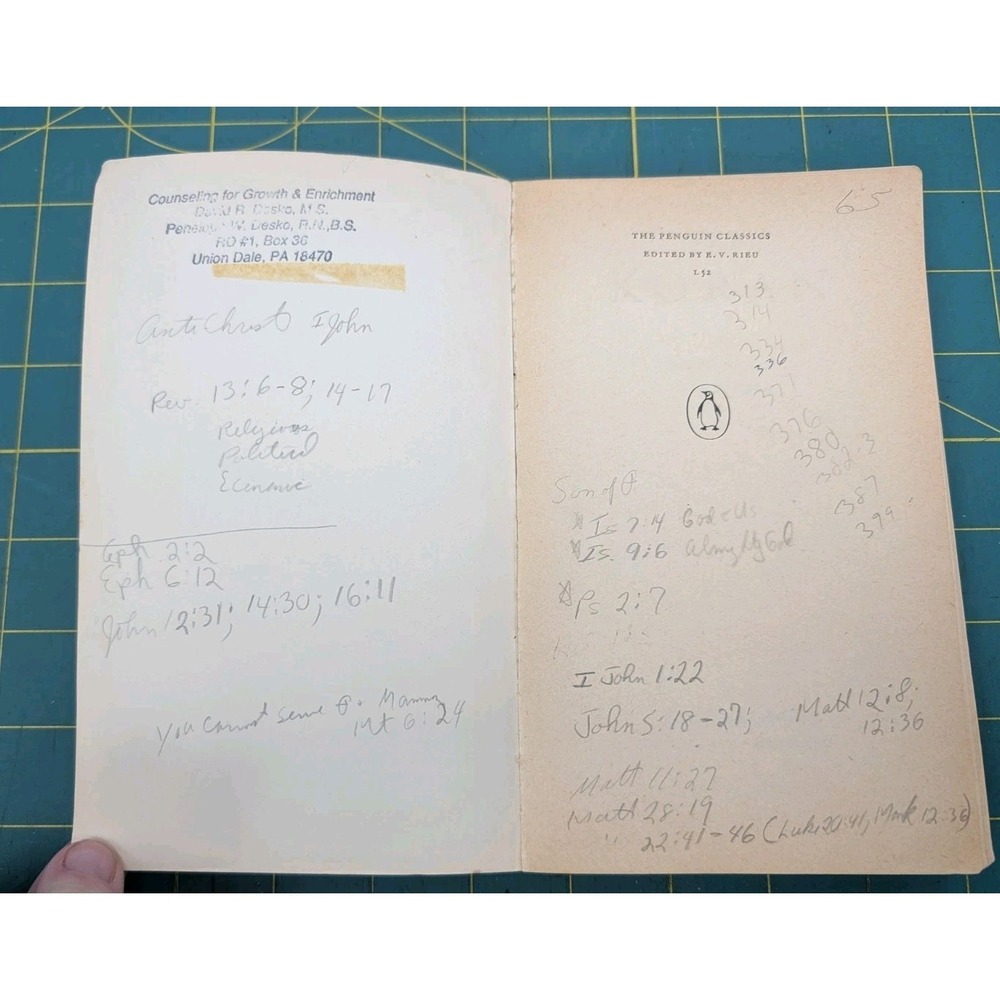 Counseling for Growth & Enrichment
David R. Desko, M.S.
Penelope W. Desko, R.N.,B.S.
RD #1, Box 36
Union Dale, PA 18470
AntiChrist I John
Rev. 13:6-8; 14-17
Religious
Political
Economic
Eph 2:2
Eph 6:12
John 12:31; 14:30; 16:11
You cannot serve & Mammon
Mt 6:24
65
THE PENGUIN CLASSICS
EDITED BY E. V. RIEU
L52
313
314
334
336
371
376
380
387
399
Son of
Is 7:14 God c Us
Is. 9:6 Almighty God
Ps 2:7
I John 1:22
John 5:18-27; Matt 12:8;
12:36
Matt 11:27
Matt 28:19
" 22:41-46 (Luke 20:41, Mark 12:36)